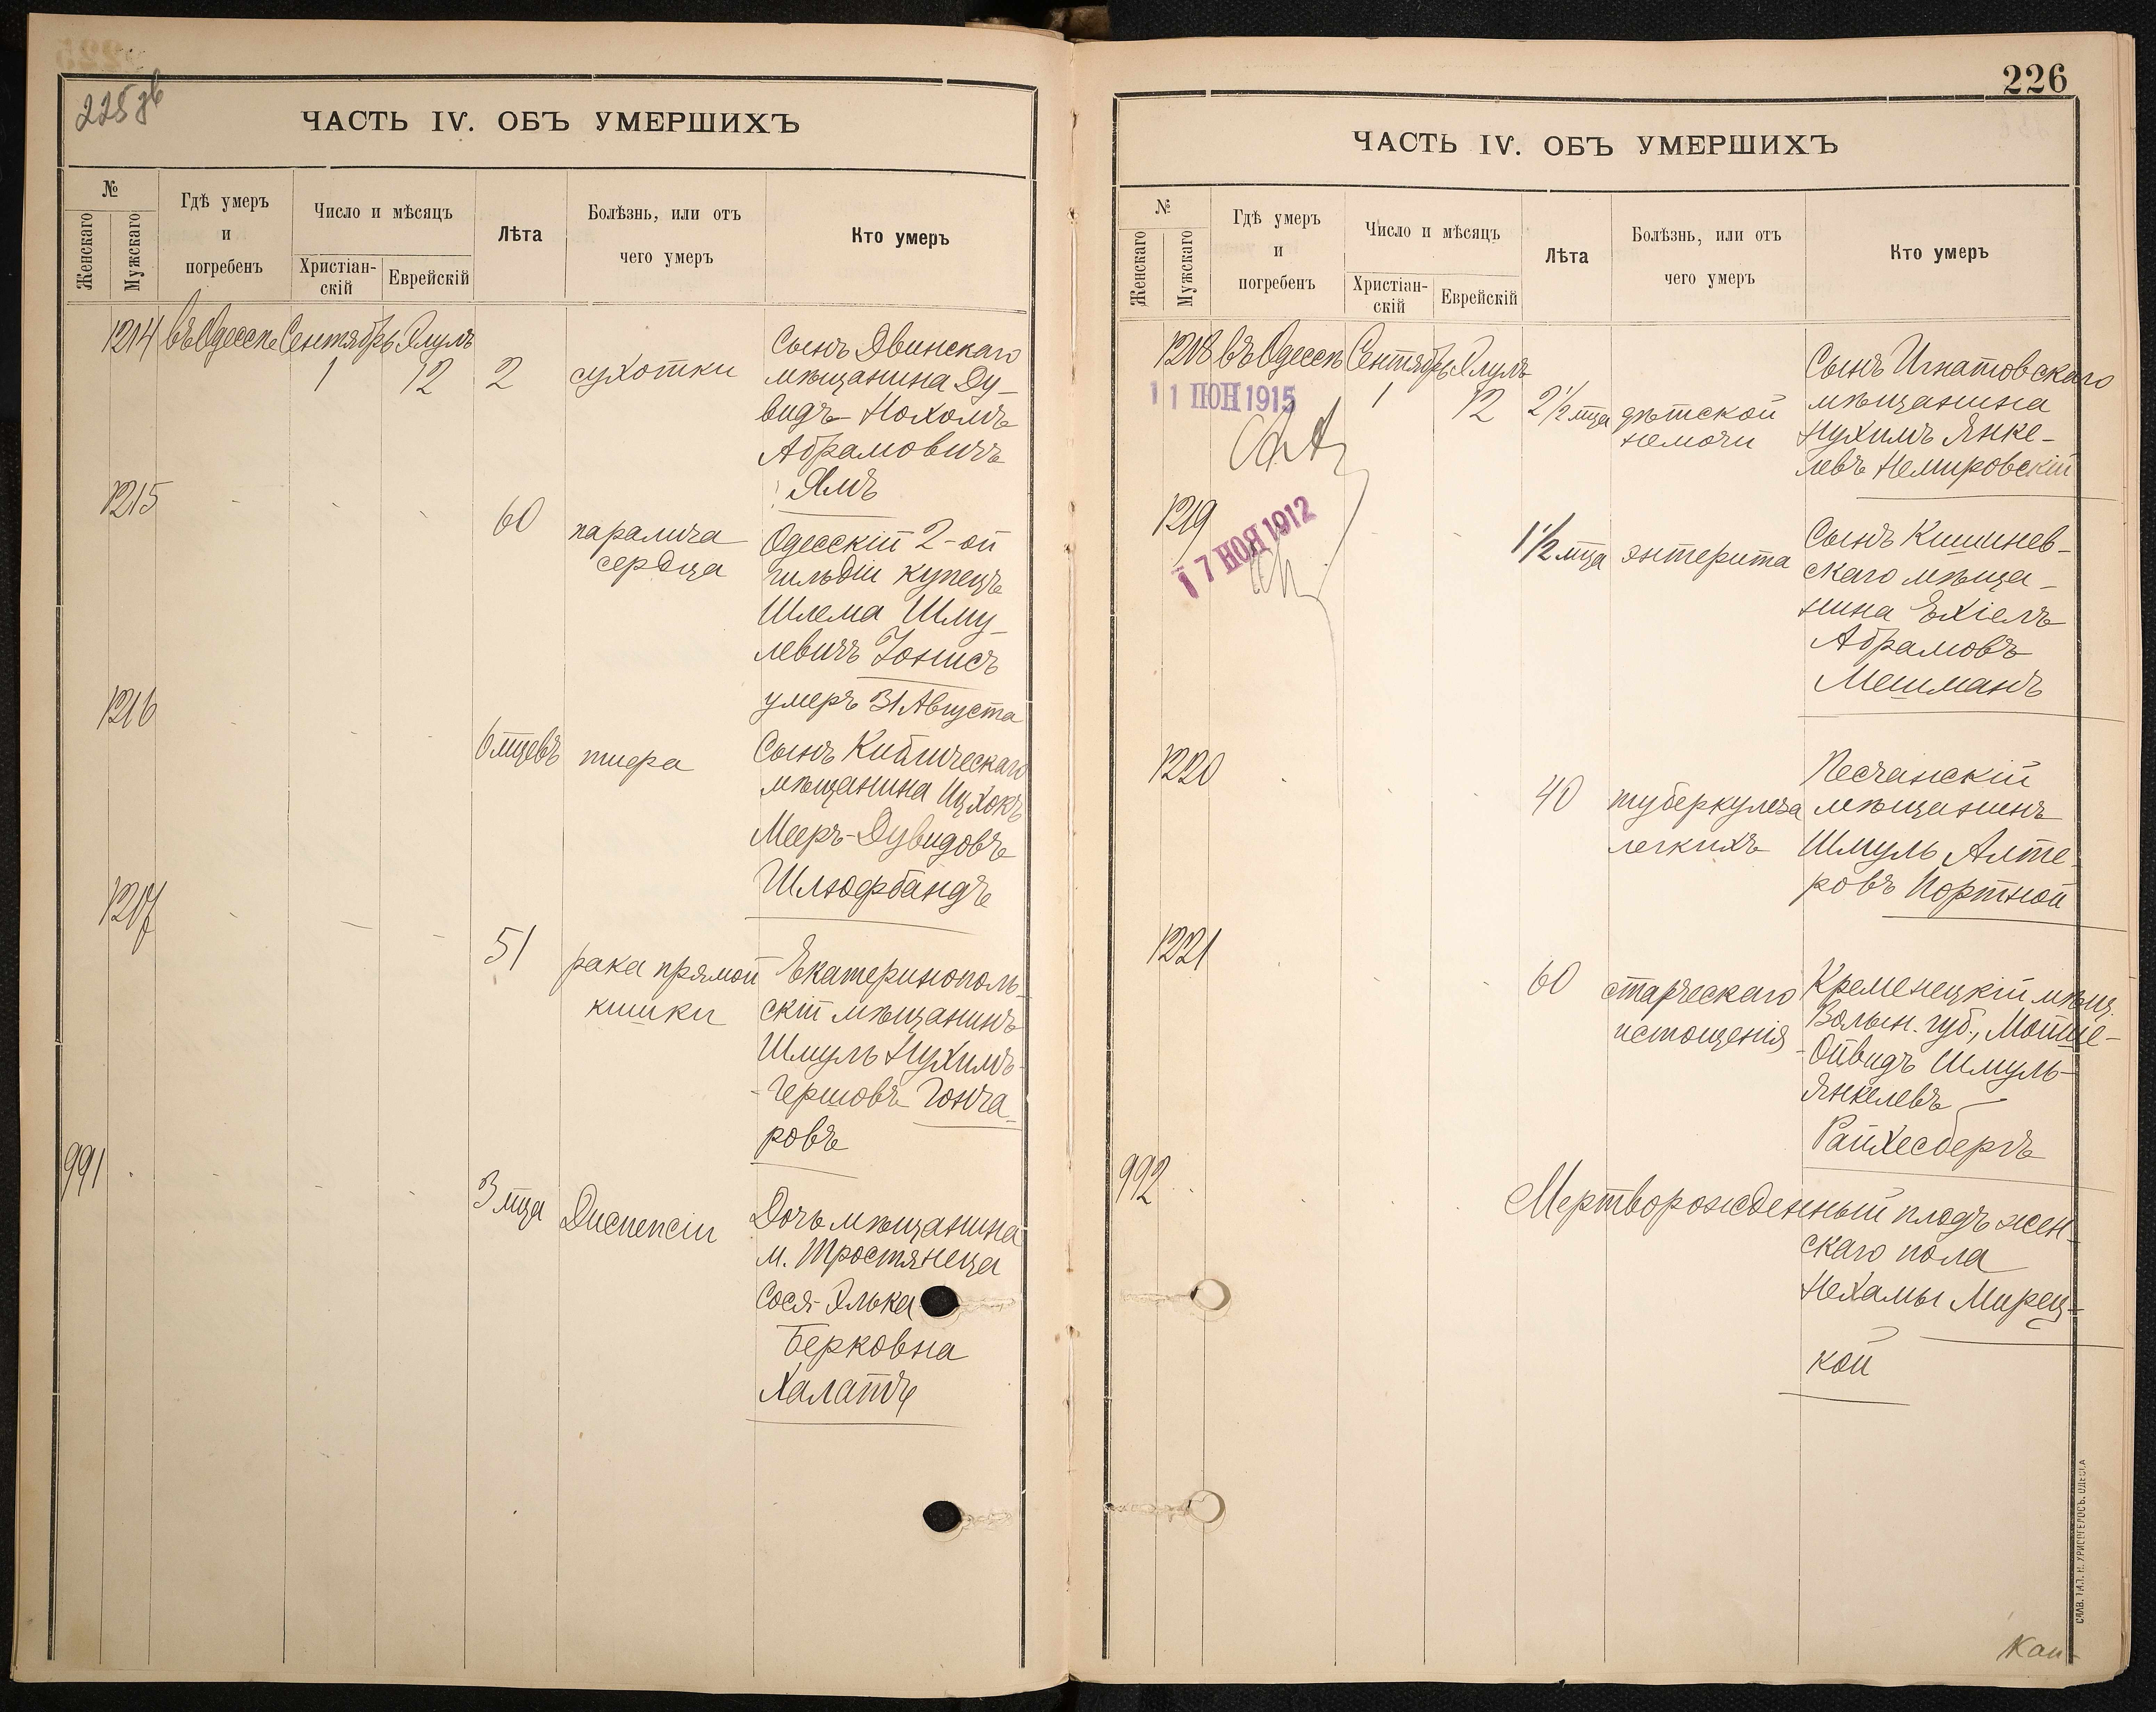 225 об
ЧАСТЬ IV. ОБЪ УМЕРШИХЪ
№
Женскаго
Мужскаго
Гдѣ умеръ
и
погребенъ
Число и мѣсяцъ
Христіан-
скій
Еврейскій
Лѣта
Болѣзнь, или отъ
чего умеръ
Кто умеръ
1214 въ Одессѣ Сентябрь Элулъ
1 12 2 сухотки
Сынъ Двинскаго
мѣщанина Ду-
видъ-Нохомъ
Абрамовичъ
Ямъ
1215
60 паралича
сердца
Одесскій 2-ой
гильдіи купецъ
Шлема Шму-
левичъ Іонисъ
умеръ 31 Августа
1216
6 мцевъ тифа
Сынъ Кибличскаго
мѣщанина Ицхокъ
Мееръ-Дувидовъ
Шлюфбандъ
1217
51 рака прямой
кишки
Екатеринополь-
скій мѣщанинъ
Шмуль Нухимъ-
-Гершовъ Гонча-
ровъ
991
3 мца Диспепсіи
Дочь мѣщанина
м. Тростянеца
Сося-Элька
Берковна
Халатъ
226
ЧАСТЬ IV. ОБЪ УМЕРШИХЪ
№
Женскаго
Мужскаго
Гдѣ умеръ
и
погребенъ
Число и мѣсяцъ
Христіан-
скій
Еврейскій
Лѣта
Болѣзнь, или отъ
чего умеръ
Кто умеръ
1218 въ Одессѣ Сентябрь Элулъ
11 ІЮН 1915
1 12 2 1/2 мца дѣтской
немочи
Сынъ Игнатовскаго
мѣщанина
Нухимъ Янке-
левъ Немировскій
1219
17 НОЯ 1912
1 1/2 мца энтерита
Сынъ Кишинев-
скаго мѣща-
нина Ехіелъ
Абрамовъ
Мешманъ
1220
40 туберкулеза
легкихъ
Песчанскій
мѣщанинъ
Шмуль Алте-
ровъ Портной
1221
60 старческаго
истощенія
Кременецкій мѣщ.
Волын. губ., Мойше-
-Ойвидъ Шмуль-
Янкелевъ
Райхесбергъ
992
Мертворожденный плодъ жен-
скаго пола
Нехамы Мирец-
кой
СЛАВ. ТИП. Н. ХРИСОГЕЛОСЪ. ОДЕССА